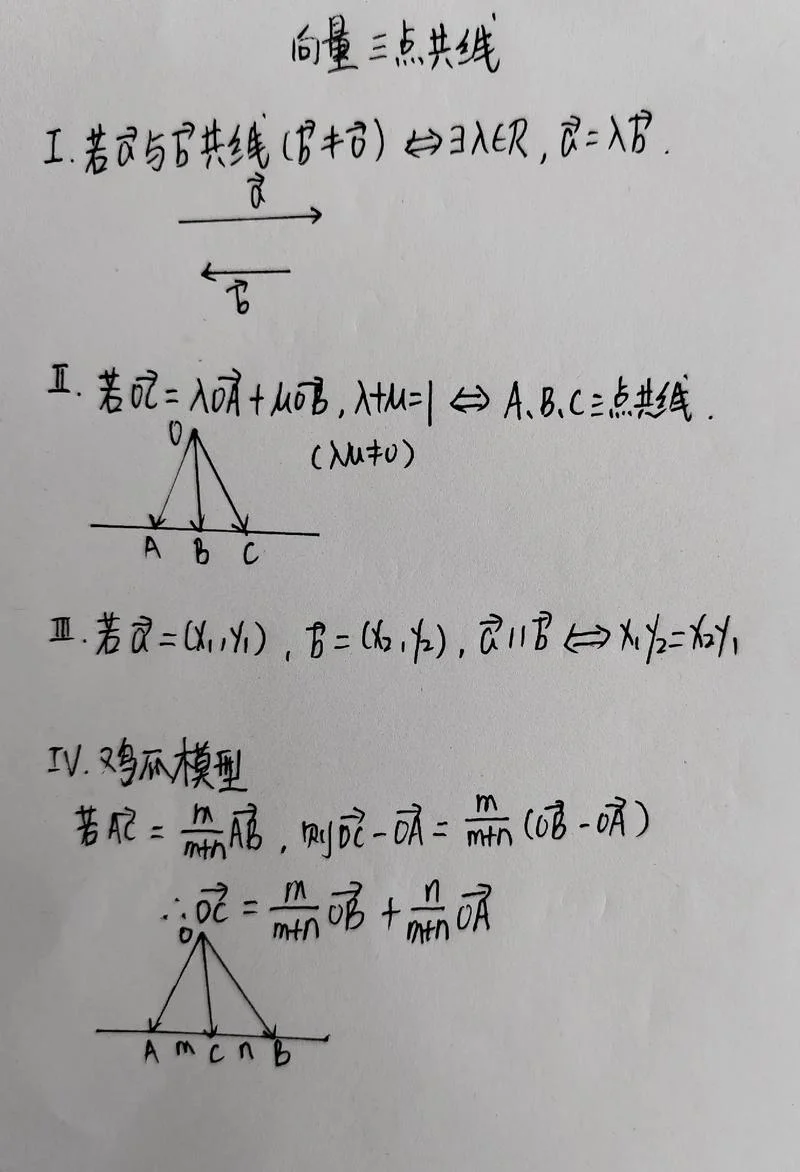 向量三点共线
Ⅰ. 若a⃗与b⃗共线(b⃗≠0⃗) ⇔ ∃λ∈R, a⃗=λb⃗.
a⃗
b⃗
Ⅱ. 若OC⃗=λOA⃗+μOB⃗, λ+μ=1 ⇔ A、B、C三点共线.
(λμ≠0)
O
A B C
Ⅲ. 若a⃗=(x₁,y₁), b⃗=(x₂,y₂), a⃗∥b⃗ ⇔ x₁y₂=x₂y₁
Ⅳ. 鸡爪模型
若AC⃗ = m/(m+n) AB⃗, 则OC⃗-OA⃗ = m/(m+n) (OB⃗-OA⃗)
∴OC⃗ = m/(m+n) OB⃗ + n/(m+n) OA⃗
O
A m C n B